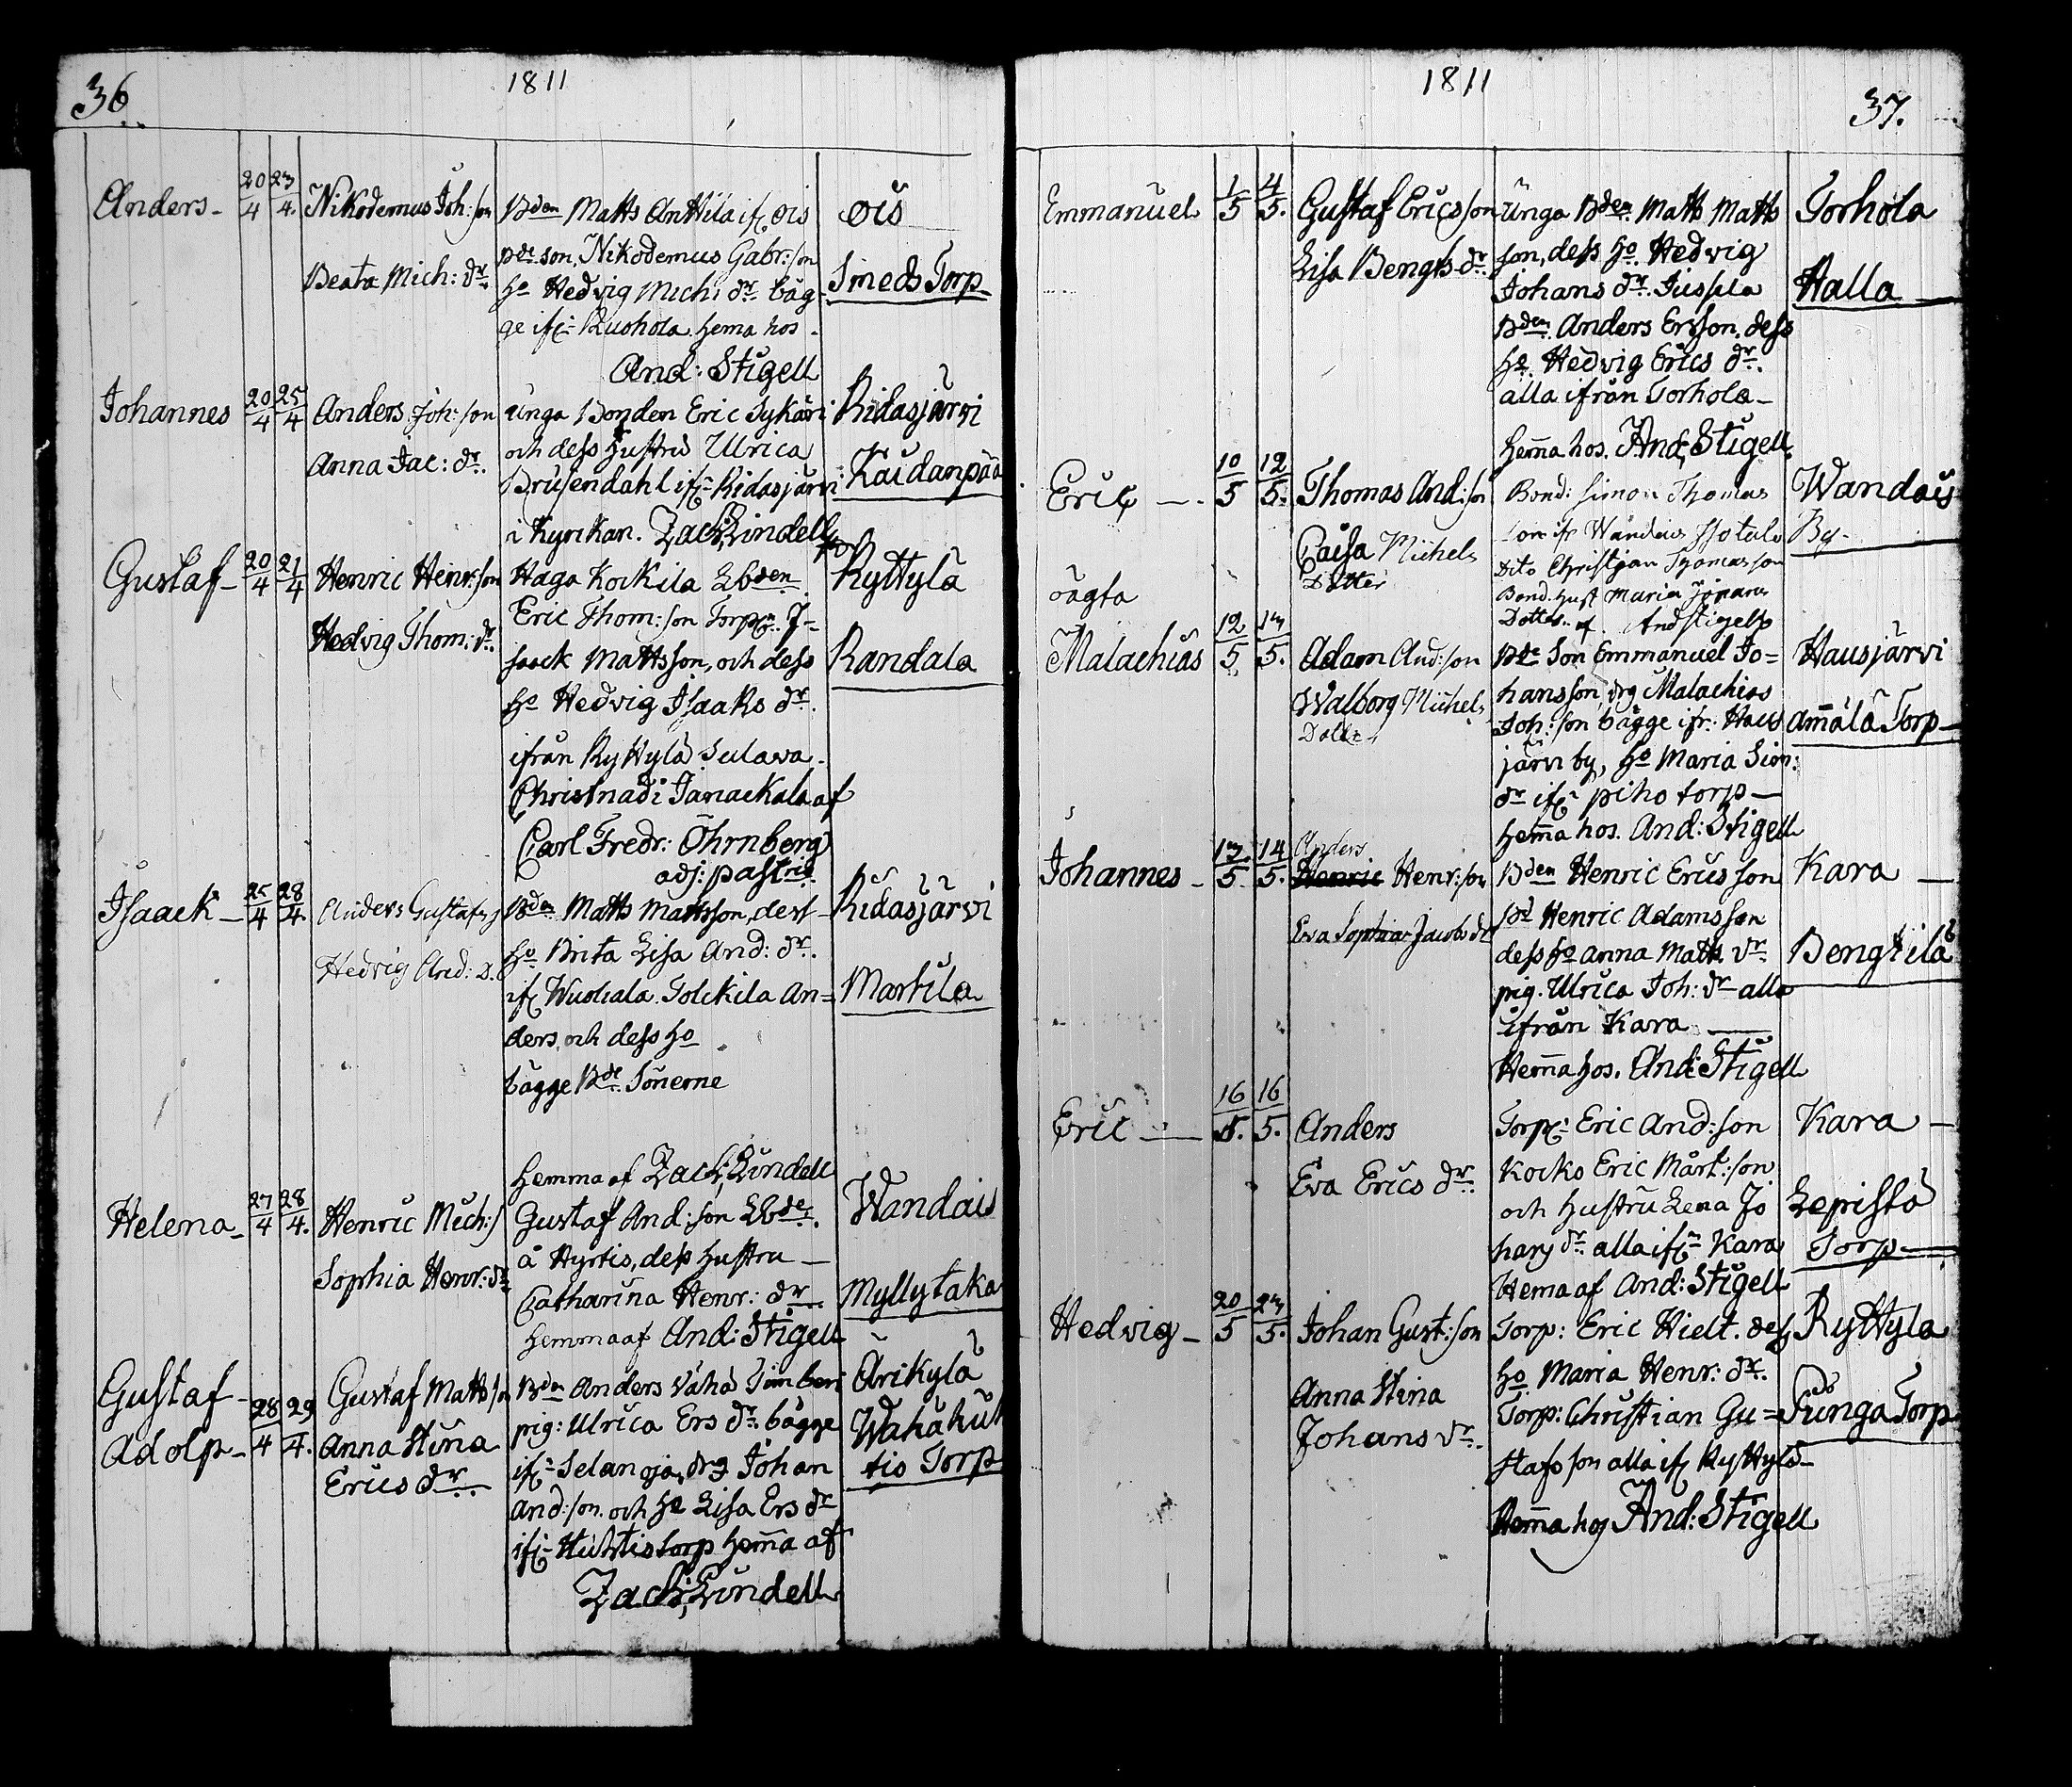 36.
1811
Anders - 20/4 23/4. Nikodemus Joh:son Bden Matts Anttila if. Ois Ois
pde son, Nikodemus Gabr:son
Beata Mich: dr. ho Hedvig Mich: dr. båg- Smeds Torp
ge ifn Ruohola. hema hos.
And: Stigell
Johannes 20/4 25/4 Anders Joh:son unga Bonden Eric Sykäri Ridasjärvi
och dess hustru Ulrica
Anna Jac: dr. Brusendahl ifn Ridasjärvi Kaidanpää
i Kyrikan. Zach: Lindell
Gustaf - 20/4 21/4 Henric Henr:son Haga Kockila Lbden Ryttylä
Eric Thom:son Torpn. J=
Hedvig Thom: dr. saack Mattsson, och dess Randala
ho Hedvig Isaaks dr.
ifrån Ryttylä Sulawa.
Christnad i Janackala af
Carl Fredr: Öhrnberg
adj: past
Isaack - 25/4 28/4. Anders Gustafs Bden Matts Mattsson, dess Ridasjärvi
Hedvig And: D. ho Brita Lisa And: dr.
if Wuohala. Tolckila An= Martila
ders och dess ho
bägge Bde Sönerne
hemma af Zach: Lindell
Helena - 27/4 28/4. Henric Mich: Gustaf And:son Lbdes. Wandais
å Hyrtis, dess hustru -
Sophia Henr: dr Catharina Henr: dr Myllytaka
hemma af And: Stigell
Gustaf - 28/4 29/4. Gustaf Matts Bdn Anders Vähä Timberi Arikylä
Adolp - Anna Stina pig: Ulrica Ers dr. bägge Wahähuh
Erics dr. ifn Selänoja, drg Johan tis Torp
And:son och ho Lisa Ers dr
ifn Huhtistorp hemma af
Zach: Lindell
1811
37.
Emmanuel 1/5 4/5. Gustaf Ericsson Unga Bden Matts Matts Torhola
Lisa Bengts dr. son, dess ho. Hedvig
Johans dr. Jussila Halla
Bden. Anders Ersson, dess
ho. Hedvig Erics dr.
alla ifrån Torhola -
hemma hos. And: Stigell
Eric - 10/5 12/5. Thomas And:son Bond: Simon Thomas Wandais
son ifr Wandais By.
Caisa Michels Dito Christian Thomasson
Dotter Bond. hust Maria
oägta Dotter af And Stigell
Malachias 12/5 13/5. Adam And:son Bde Son Emmanuel Jo= Hausjärvi
Walborg Michels hansson, drg Malachias
Dotter Joh:son bägge ifr: Haus Ammälä Torp
järvi by, ho Maria Sim:
dr ifn piho torp -
hemma hos. And: Stigell
Johannes - 13/5 14/5. Anders
Henric Henr:son Bden Henric Ericsson Kara
Eva Sophia Jacobs dr Henric Adamsson
dess ho Anna Matts. dr. Bengtilä
pig. Ulrica Joh: dr alla
ifrån Kara
Hemma hos. And: Stigell
Eric - 16/5. 16/5. Anders Torpn: Eric And:son Kara -
Eva Erics dr. Kocko Eric Mårt:son
och Hustru Lena Jo Lepistö
hans dr alla ifn Kara Torp
Hema af And: Stigell
Hedvig - 20/5 23/5. Johan Gust:son Torp: Eric Hielt. dess Ryttylä
Anna Stina ho Maria Henr: dr.
Johans dr. Torp: Christian Gu= Punga Torp
stafsson alla if Ryttylä
Hemma hos And: Stigell